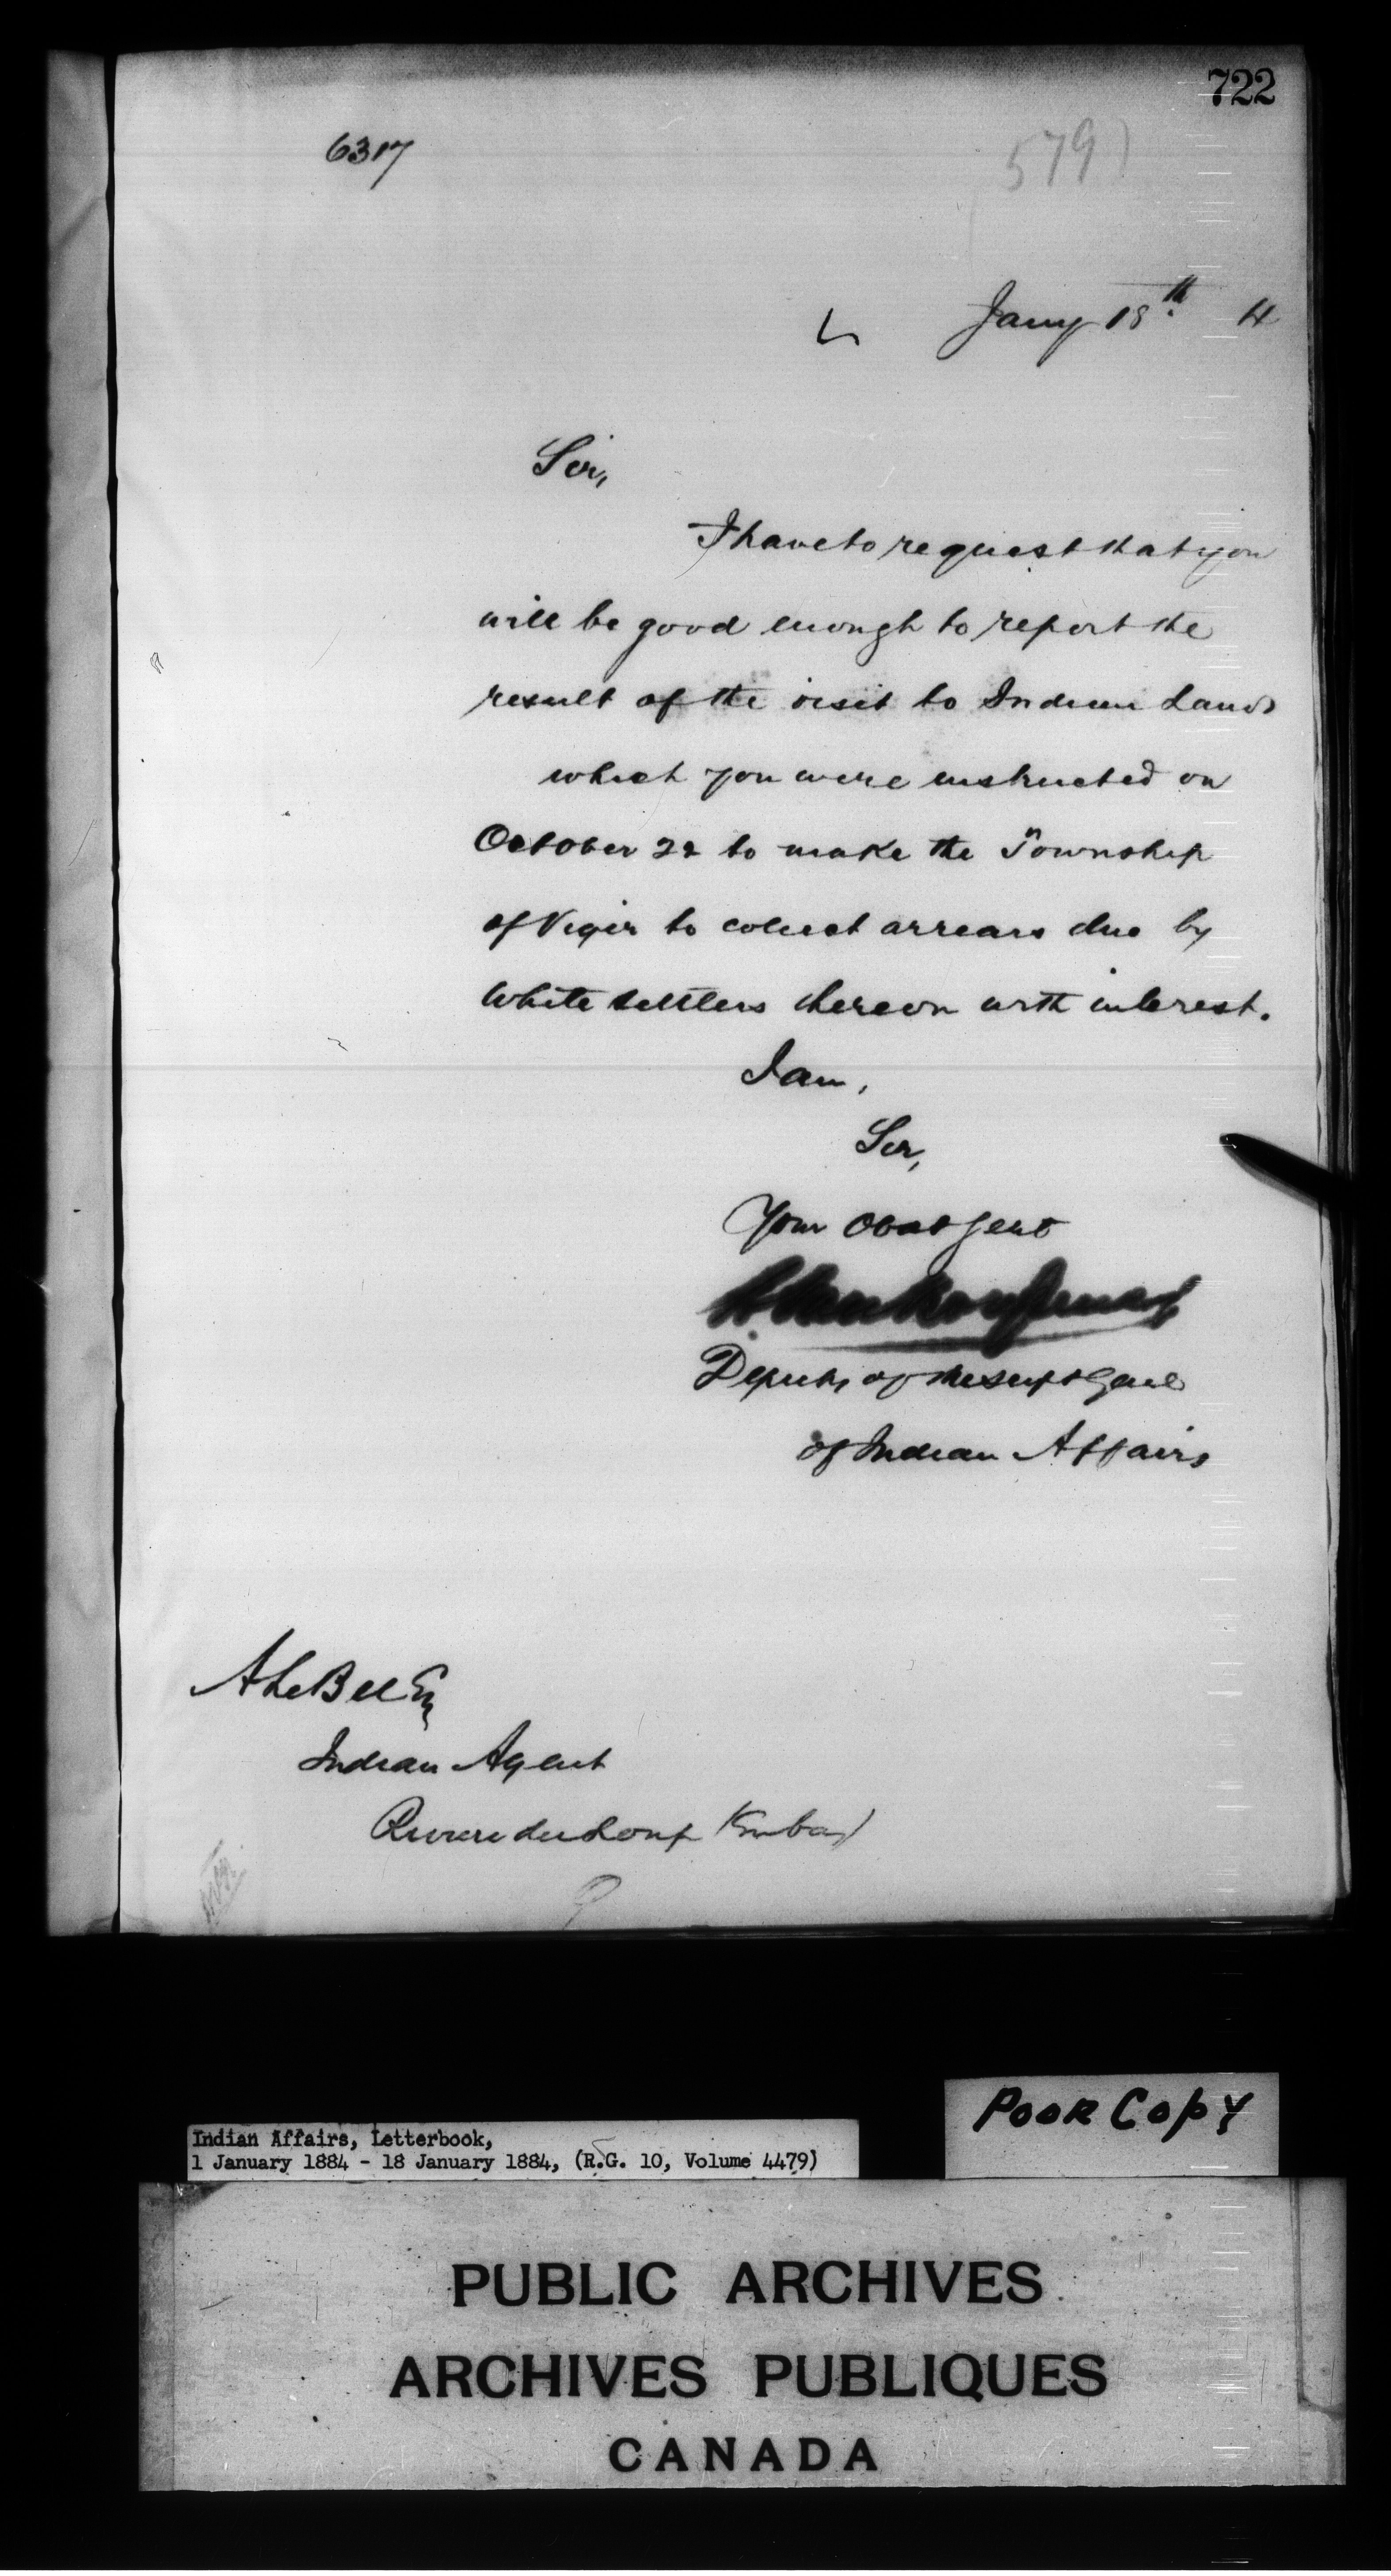 722
6317
579
Jany 18th 4
Sir,
I have to request that you
will be good enough to report the
result of the visit to Indian Lands
which you were instructed on
October 22 to make the Township
of Viger to collect arrears due by
White settlers thereon with interest.
I am,
Sir,
Your Obdt Servt
Deputy of the Supt Genl
of Indian Affairs
A LeBel Esq
Indian Agent
Riviere du Loup
Poor Copy
Indian Affairs, Letterbook,
1 January 1884 - 18 January 1884, (R.G. 10, Volume 4479)
PUBLIC ARCHIVES
ARCHIVES PUBLIQUES
CANADA